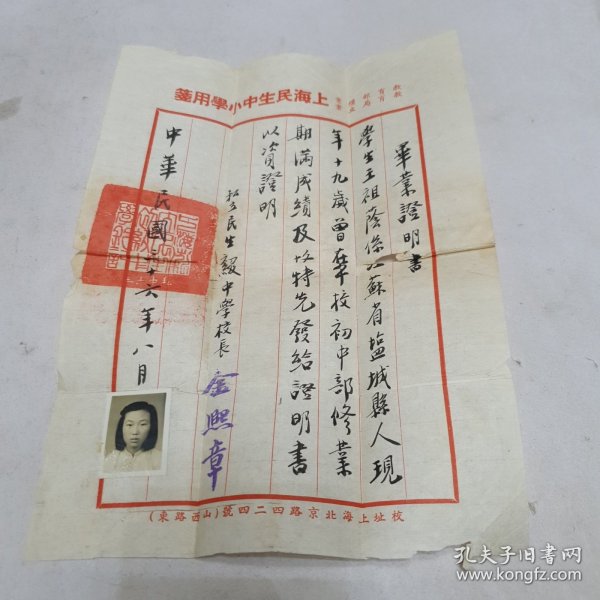 上海民生中小學用箋
畢業證明書
學生王祖蔭係江蘇省鹽城縣人現
年十九歲曾在本校初中部修業
期滿成績及格特先發給證明書
以資證明
私立民生級中學校長 金熙章
中華民國三十六年八月
校址上海北京路四二四號(山西路東)
孔夫子旧书网
www.kongfz.com